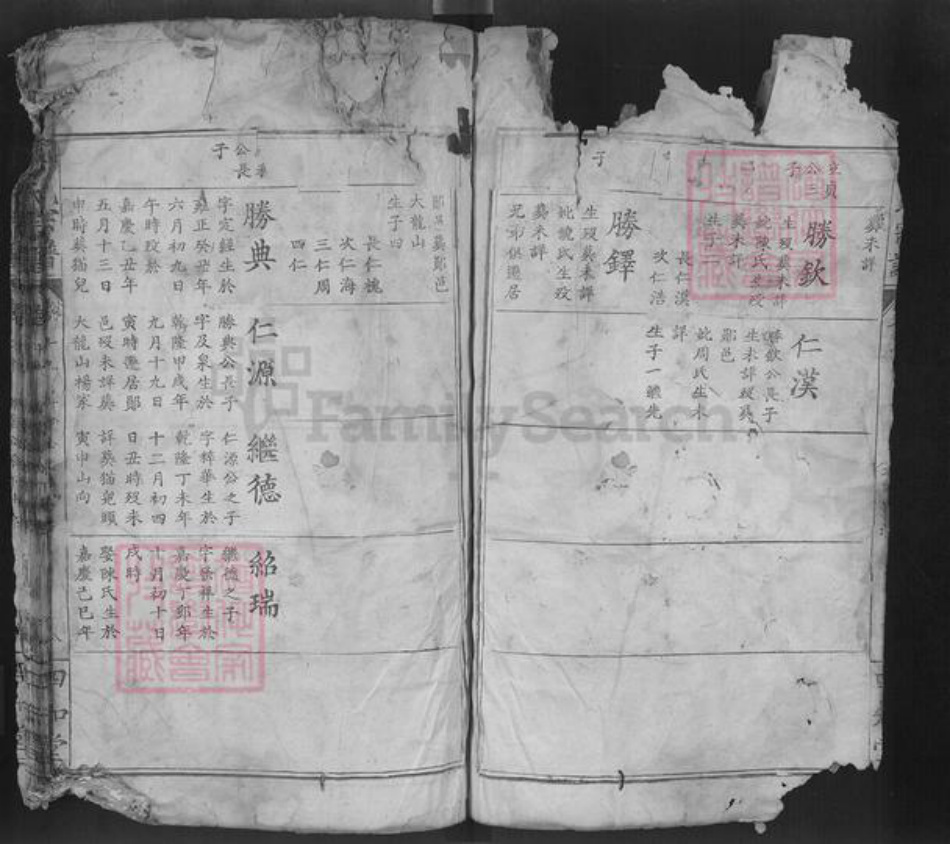 葬未詳
公
子
勝欽
生歿葬未詳
妣陳氏生歿
葬未詳
生子二
長仁漢
次仁浩
仁漢
勝欽公長子
生未詳歿葬
鄖邑
妣周氏生未
詳
生子一繼先
子
勝鐸
生歿葬未詳
妣龍氏生歿
葬未詳
兄弟俱遷居
鄖邑葬鄖邑
大龍山
生子四
長仁槐
次仁海
三仁周
四仁
公長
子
勝典
字定經生於
雍正癸丑年
六月初九日
午時歿於
嘉慶乙丑年
五月十三日
申時葬猫兒
仁源
勝典公長子
字及泉生於
乾隆甲戌年
九月十九日
寅時遷居鄖
邑歿未詳葬
大龍山楊家
繼德
仁源公之子
字粹華生於
乾隆丁未年
十二月初四
日丑時歿未
詳葬猫兒頭
寅申山向
紹瑞
繼德之子
字發祥生於
嘉慶丁卯年
十月初十日
戌時
娶陳氏生於
嘉慶己巳年
四知堂
FamilySearch